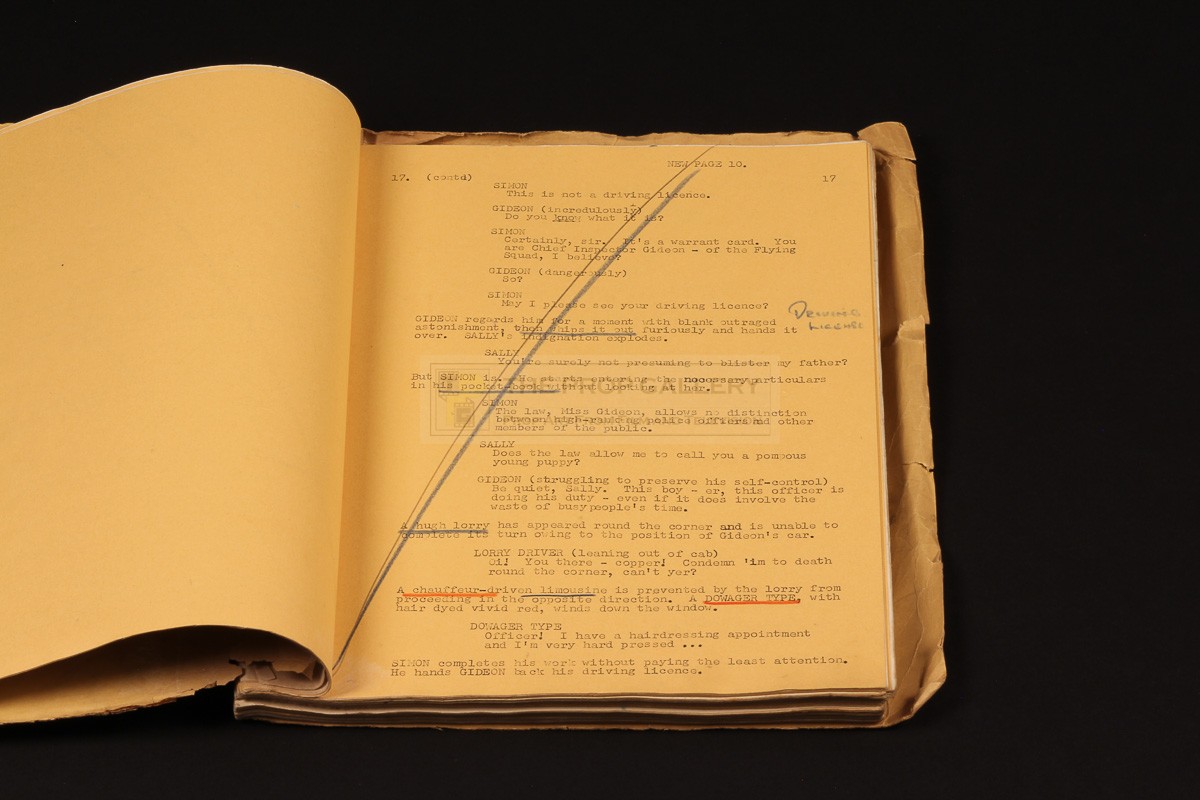 NEW PAGE 10.
17. (contd) 17
SIMON
This is not a driving licence.
GIDEON (incredulously)
Do you know what it is?
SIMON
Certainly, sir. It's a warrant card. You
are Chief Inspector Gideon - of the Flying
Squad, I believe?
GIDEON (dangerously)
So?
SIMON
May I please see your driving licence?
GIDEON regards him for a moment with blank outraged
astonishment, then whips it out furiously and hands it
over. SALLY's indignation explodes.
DRIVING
LICENSE
SALLY
You're surely not presuming to blister my father?
But SIMON is. He starts entering the necessary particulars
in his pocket-book without looking at her.
THE PROP GALLERY
SIMON
The law, Miss Gideon, allows no distinction
between high-ranking police officers and other
members of the public.
SALLY
Does the law allow me to call you a pompous
young puppy?
GIDEON (struggling to preserve his self-control)
Be quiet, Sally. This boy - er, this officer is
doing his duty - even if it does involve the
waste of busy people's time.
A hugh lorry has appeared round the corner and is unable to
complete its turn owing to the position of Gideon's car.
LORRY DRIVER (leaning out of cab)
Oi! You there - copper! Condemn 'im to death
round the corner, can't yer?
A chauffeur-driven limousine is prevented by the lorry from
proceeding in the opposite direction. A DOWAGER TYPE, with
hair dyed vivid red, winds down the window.
DOWAGER TYPE
Officer! I have a hairdressing appointment
and I'm very hard pressed ...
SIMON completes his work without paying the least attention.
He hands GIDEON back his driving licence.